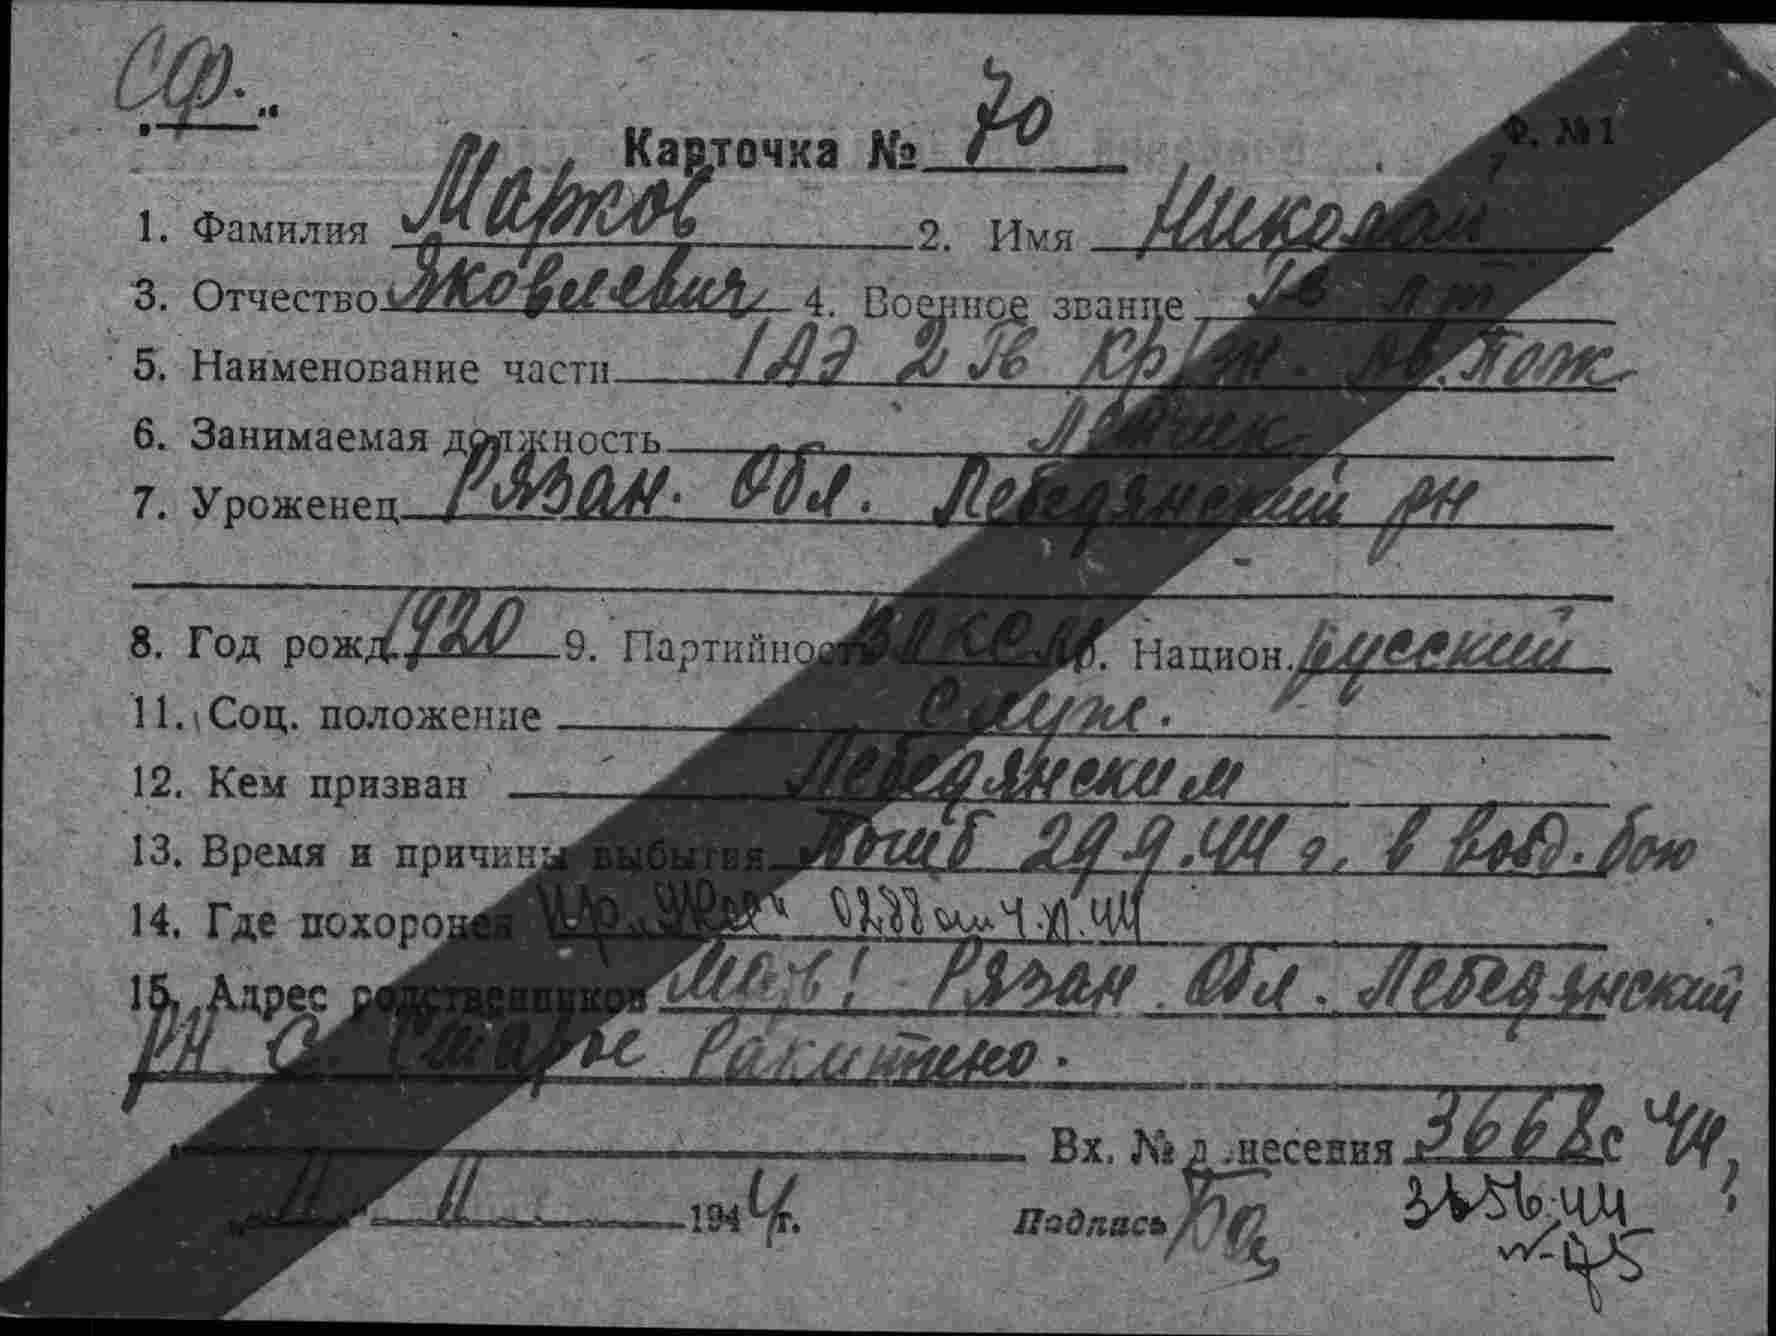 СФ.
Карточка № 70 Ф. №1
1. Фамилия Марков 2. Имя Николай
3. Отчество Яковлевич 4. Военное звание Гв лт
5. Наименование части 1 АЭ 2 Гв Кр/зн. Ав. Полк
6. Занимаемая должность летчик
7. Уроженец Рязан. Обл. Лебедянский рн
8. Год рожд. 1920 9. Партийность ВЛКСМ 10. Национ. русский
11. Соц. положение служ.
12. Кем призван Лебедянским
13. Время и причины выбытия Погиб 29.9.44 г. в возд. бою
14. Где похоронен 0288 от 4.XI.44
15. Адрес родственников Мать! Рязан. Обл. Лебедянский
рн с. Старое Ракитино.
Вх. № д несения 3668с 44
11 11 1944 г. Подпись 3656.44
№-75